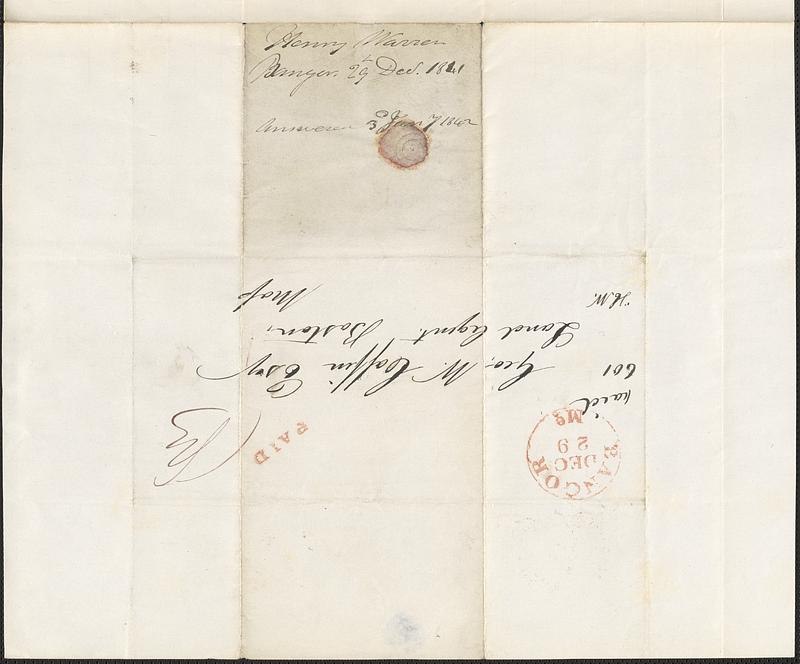 Henry Warren
Bangor. 29 Dec. 1841
Answered 3 Jany 1842
paid
601
Geo. W. Coffin Esqr
Land Agent. Boston.
H.W.
Mass
PAID
BANGOR
DEC
29
Me.